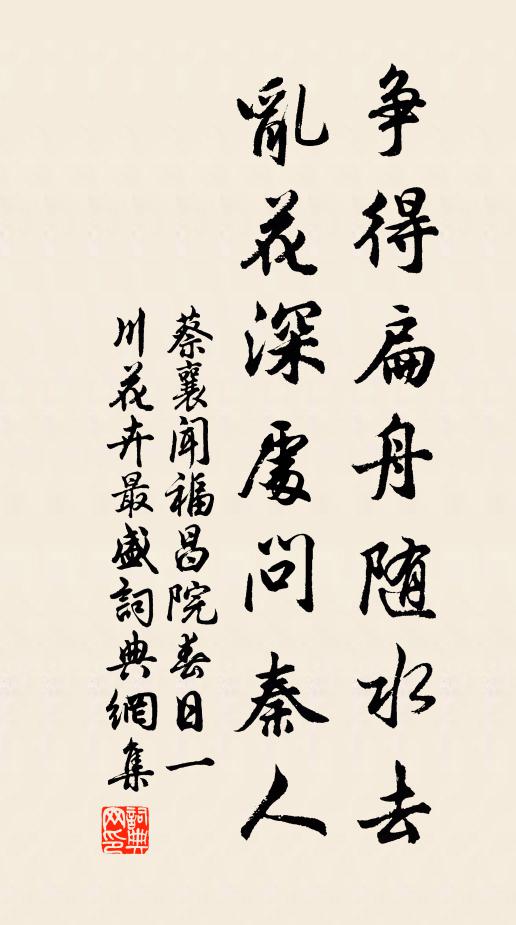 争得扁舟随水去
亂花深處問秦人
蔡襄聞福昌院春日一
川花卉最盛詞典網集
詞典网印